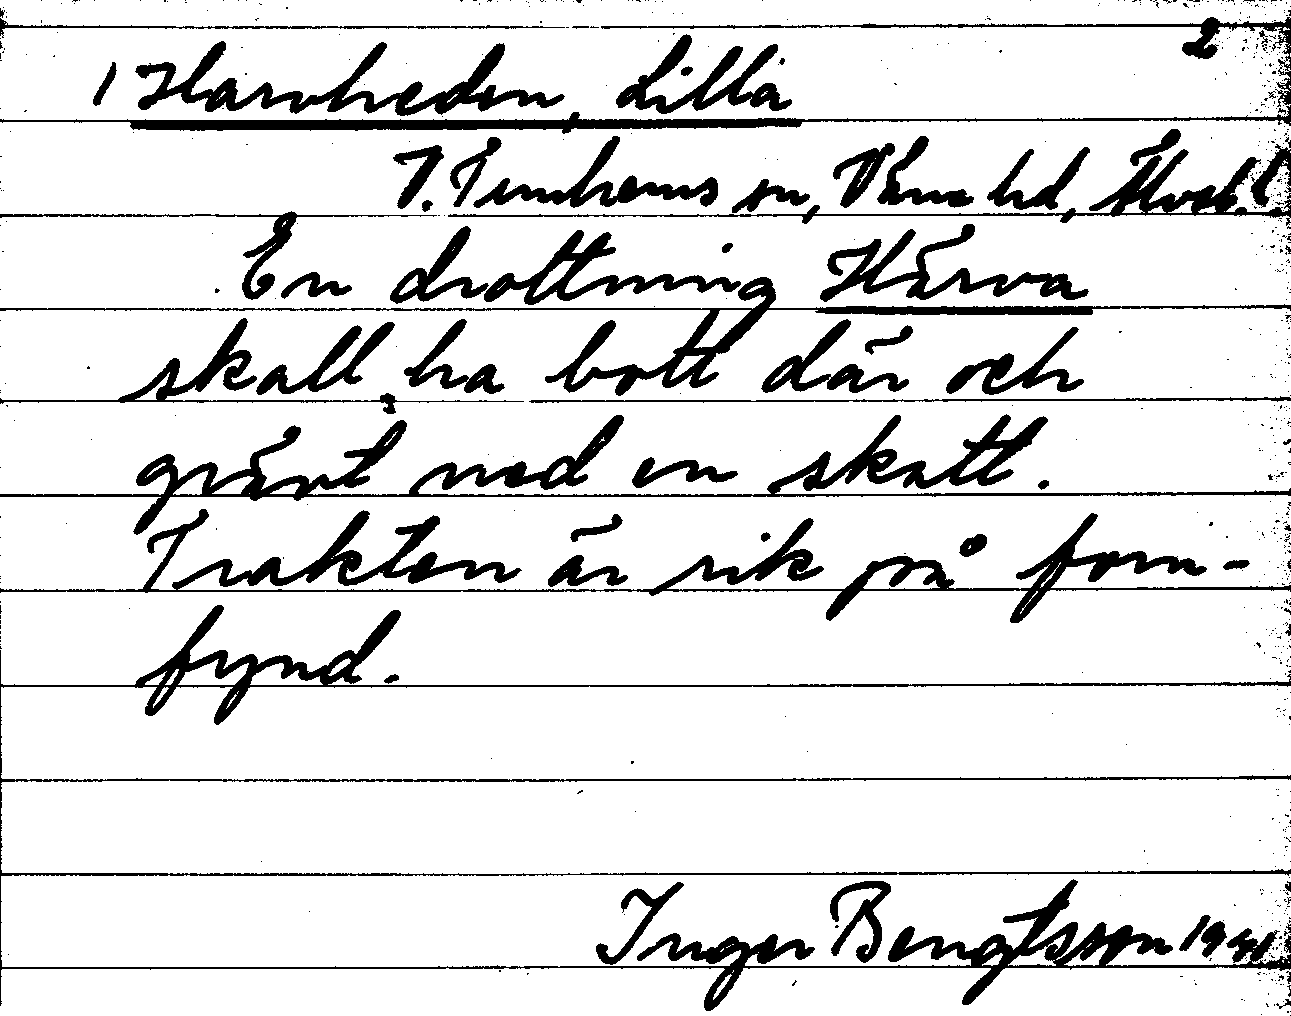 2
1 Harvheden, Lilla
V. Tunhems sn, Väne hd, Älvsb. l.
En drottning Härva
skall ha bott där och
grävt ned en skatt.
Trakten är rik på forn-
fynd.
Inger Bengtsson 1941